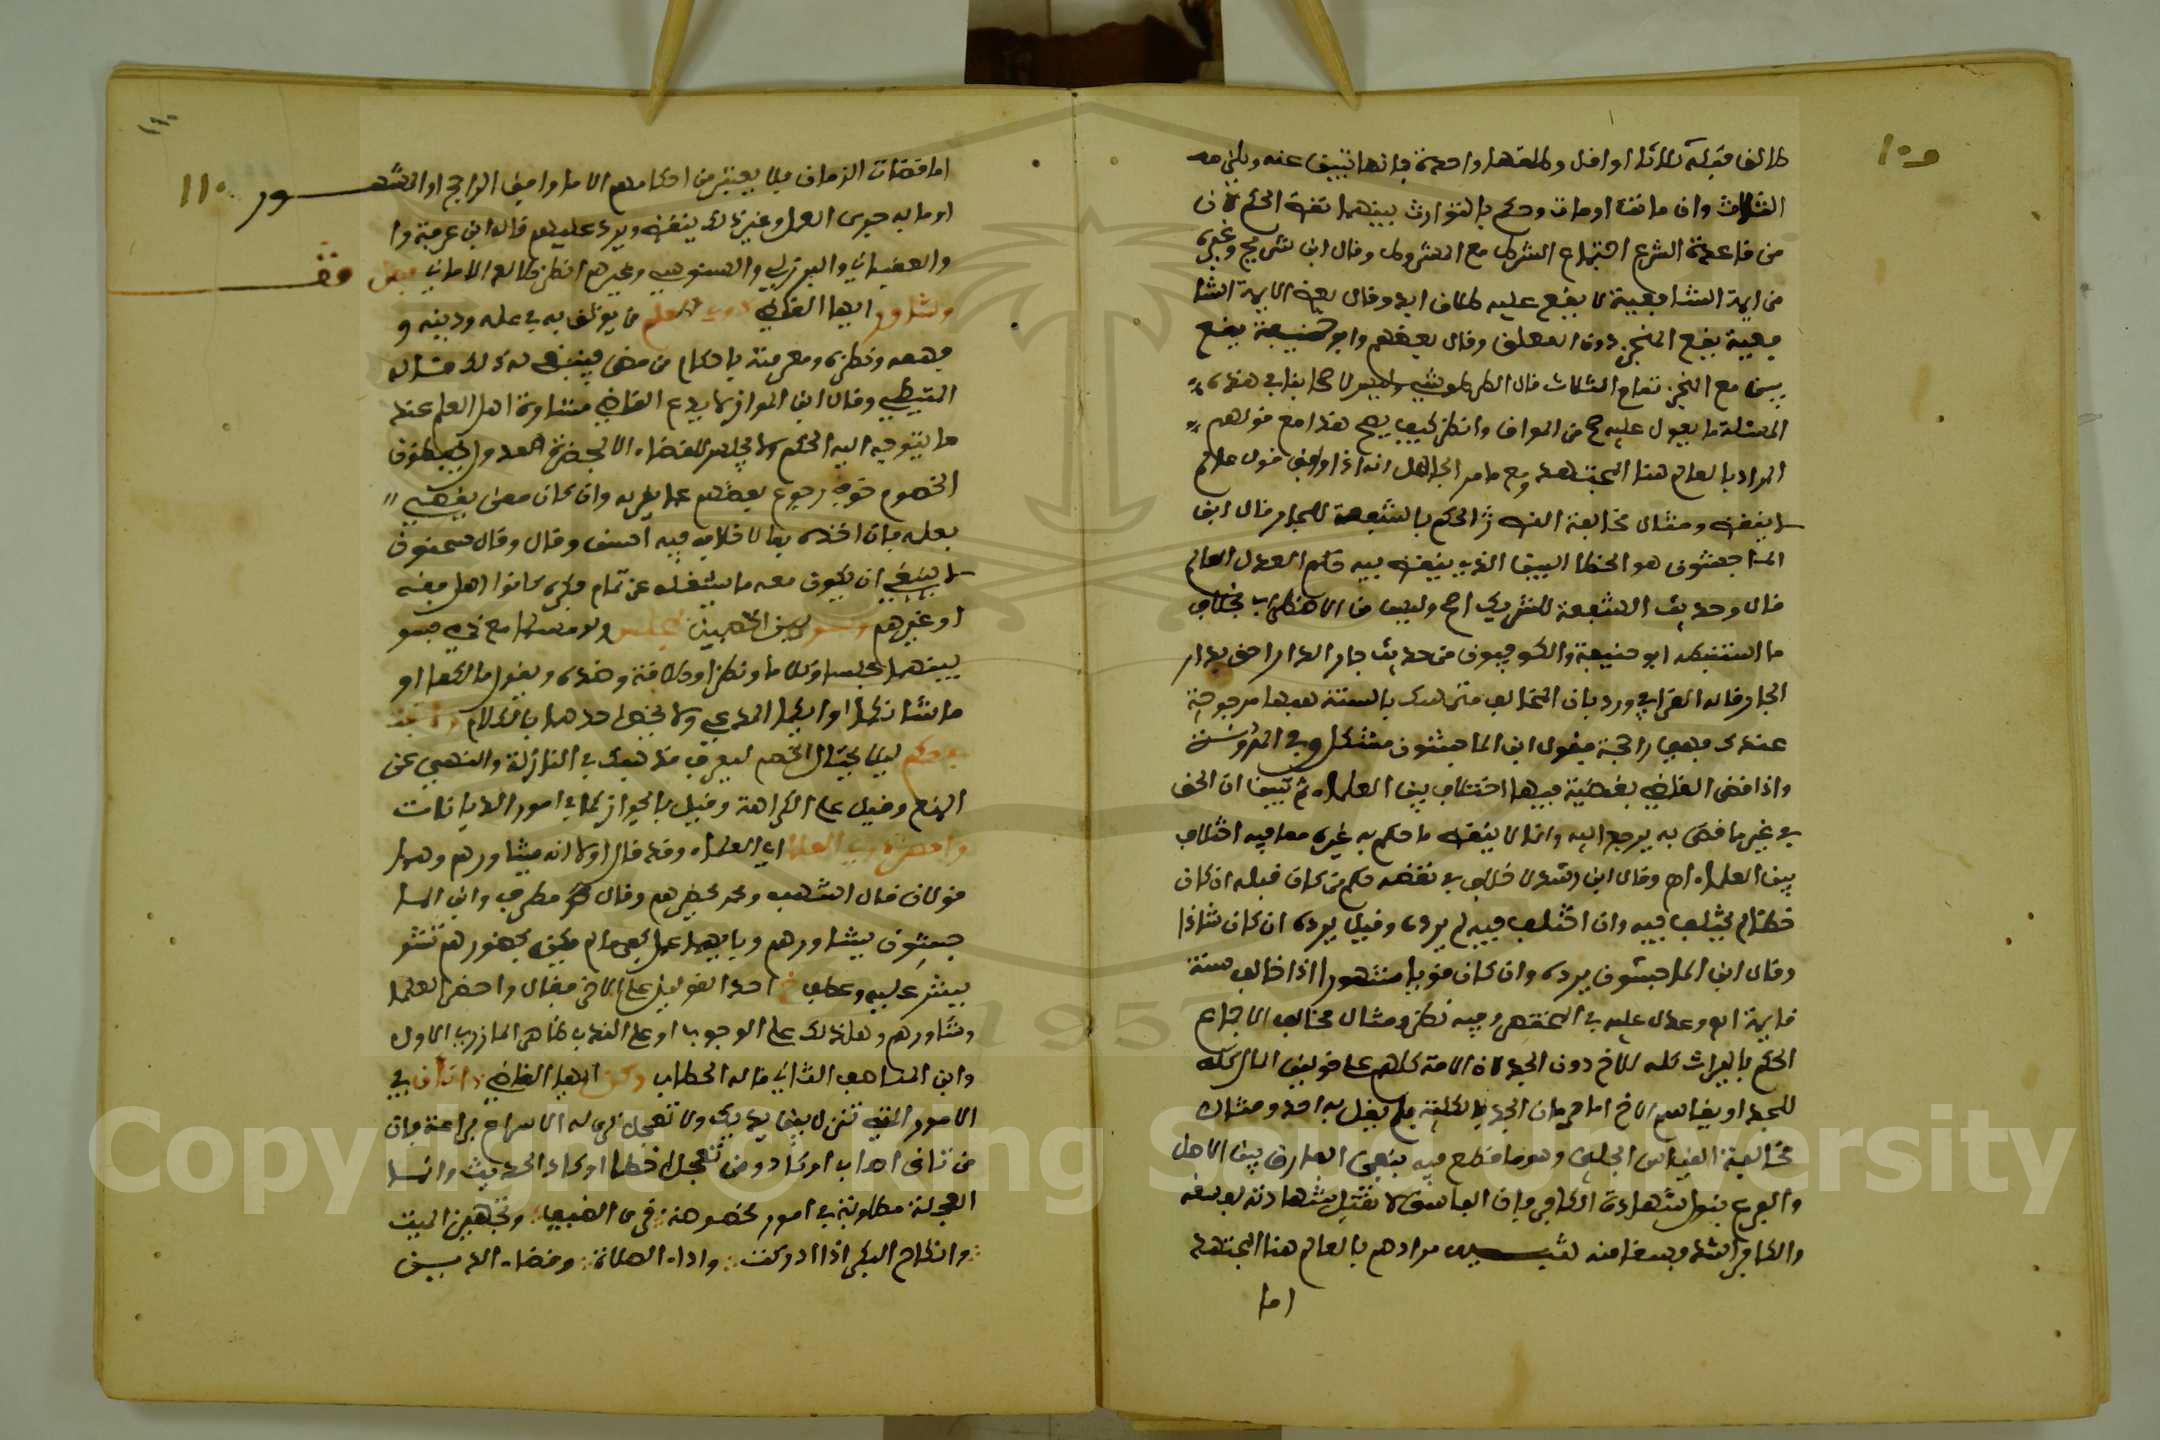 طالق قبله ثلاثا او اقل وطلقها واحدة فانها تبين عنه ويلزمه
الثلاث وان ماتت او مات وحكم بالتوارث بينهما نقض الحكم لان
من قاعدة الشرع اجتماع الشرط مع المشروط وقال ابن شريج وغيره
من ايمة الشافعية لا يقع عليه طلاق ابدا وقال بعض الايمة الشا
فعية يقع المنجز دون المعلق وقال بعضهم وابو حنيفة يقع
مع المنجز تمام الثلاث قال الطرطوشي وليس لاصحابنا في هذه
المسئلة ما يعول عليه اهـ من المواق وانظر كيف يصح هذا مع قولهم
المراد بالعالم هنا المجتهد ومع ما مر الجاهل انه اذا وافق قول عالم
لا ينقض ومثال مخالفة النص الحكم بالشفعة للجار قال ابن
الماجشون هو الخطا البين الذي ينقض فيه حكم العدل العالم
قال وحديث الشفعة للشريك اصح وليس من الاضطراب بخلاف
ما استنبطه ابو حنيفة والكوفيون من حديث جار الدار احق بدار
الجار قاله القرافي ورد بان المخالف متمسك بالسنة هبها مرجوحة
عندك فهي راجحة فقول ابن الماجشون مشكل وفي المدونة
واذا قضى القاضي بقضية فيها اختلاف بين العلماء ثم تبين ان الحق
في غير ما قضى به يرجع اليه وانما لا ينقض ما حكم به غيره مما فيه اختلاف
بين العلماء اهـ وقال ابن رشد لا خلاف في نقض حكم من كان قبله ان كان
خطأ لم يختلف فيه وان اختلف فيه لم يرده وقيل يرده ان كان شاذا
وقال ابن الماجشون يرده وان كان قويا مشهورا اذا خالف سنة
قايمة اهـ وعول عليه في المختصر وفيه نظر ومثال مخالف الاجماع
الحكم بالميراث كله للاخ دون الجد لان الامة كلهم على قولين المال كله
للجد او يقاسم الاخ اما حرمان الجد بالكلية فلم يقل به احد ومثال
مخالفة القياس الجلي وهو ما قطع فيه بنفي الفارق بين الاصل
والفرع قبول شهادة الكافر فان الفاسق لا تقبل شهادته لفسقه
والكافر اشد فسقا منه تنبيه مرادهم بالعالم هنا المجتهد
اما
اما قضات الزمان فلا يعتبر من احكامهم الا ما وافق الراجح او المشهور
او ما به جرى العمل وغير ذلك ينقض ويرد عليهم قاله ابن عرفة وا
والعقباني والبرزلي والسنوسي وغيرهم انظر طالع الاماني فصل فقـ
وشاور ايها القاضي ذوي العلم من يوثق به في علمه ودينه و
فهمه ونظره ومعرفته باحكام من مضى فينبغي له ذلك قاله
التيطي وقال ابن المواز لا يدع القاضي مشاورة اهل العلم عند
ما يتوجه اليه الحكم ولا يجلس للقضاء الا بحضرة العدول ليحفظون
الخصوم خوف رجوع بعضهم عما يقر به وان كان ممن يقضي
بعلمه فان اخذه بما لا خلاف فيه احسن وقال وقال سحنون
لا ينبغي ان يكون معه ما يشغله عن تمام فكره كانوا اهل فقه
او غيرهم وسو بين الخصمين بمجلس ولو مسلما مع ذمي فسو
بينهما مجلسا وكلاما ونظرا وطلاقة وضده ويقول مالكما او
ما شانكما او ايكما المدعي ولا يخص احدهما بالكلام
بحكم ليلا يحتال الخصم ليعرف مذهبك في النازلة والنهي عن
المنع وقيل على الكراهة وقيل بالجواز كما في امور الديانات
واحضرن العلما اي العلماء وقد قال اولا انه يشاورهم وهما
قولان قال اشهب ومحمد يحضرهم وقال مطرف وابن الما
جشون يشاورهم ولا يجلس معهم فان بحضورهم تشو
يشر عليه وعطف احد القولين على الاخر فقال واحضر العلما
وشاورهم وهل ذلك على الوجوب او على الندب ظاهر المازري الاول
وابن المناصف الثاني قاله الحطاب وكن ايها القاضي ذا تان في
الامور التي تنزل بين يديك ولا تعجل فان له الاسراح براعة فان
من تانى اصاب او كاد ومن تعجل اخطا او كاد الحديث وانما
العجلة مطلوبة في امور مخصوصة قرى الضيف وتجهيز الميت
وانكاح البكر اذا ادركت واداء الصلاة وقضاء الدين